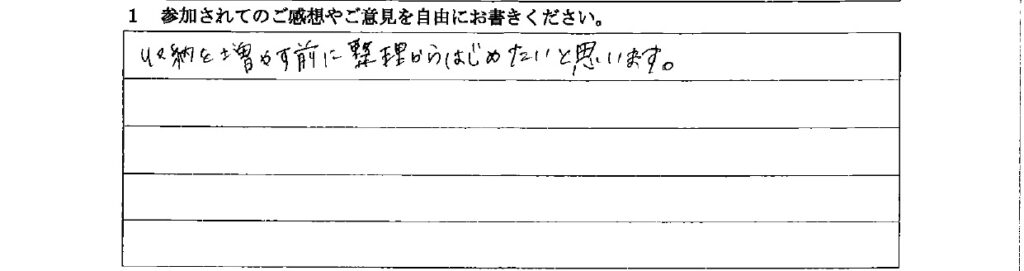 1 参加されてのご感想やご意見を自由にお書きください。
収納を増やす前に整理からはじめたいと思います。